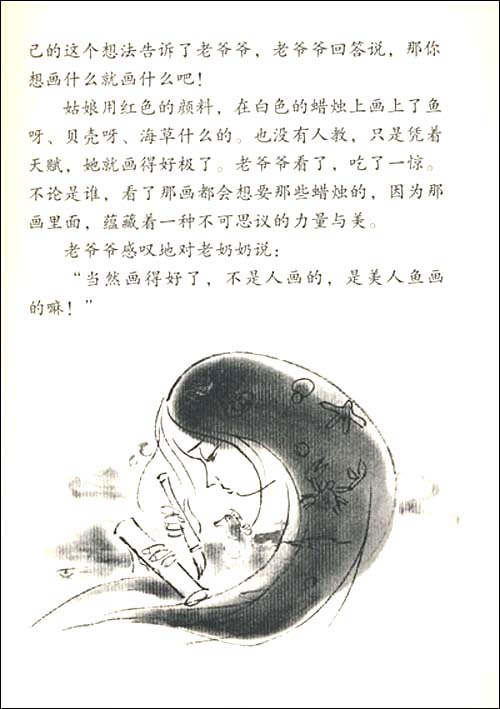 己的这个想法告诉了老爷爷，老爷爷回答说，那你
想画什么就画什么吧！
姑娘用红色的颜料，在白色的蜡烛上画上了鱼
呀、贝壳呀、海草什么的。也没有人教，只是凭着
天赋，她就画得好极了。老爷爷看了，吃了一惊。
不论是谁，看了那画都会想要那些蜡烛的，因为那
画里面，蕴藏着一种不可思议的力量与美。
老爷爷感叹地对老奶奶说：
“当然画得好了，不是人画的，是美人鱼画
的嘛！”